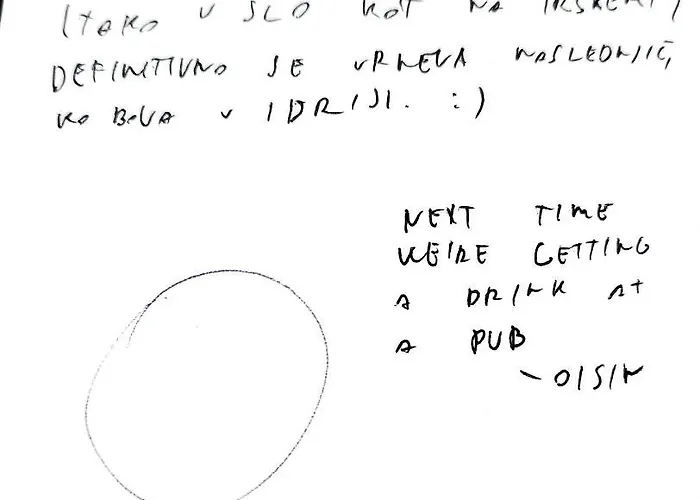 (TAKO V SLO KOT NA IRSKEM)
DEFINITIVNO SE VRNEVA NASLEDNJIČ,
KO BOVA V IDRIJI. :)
NEXT TIME
WE'RE GETTING
A DRINK AT
A PUB
- OISIN